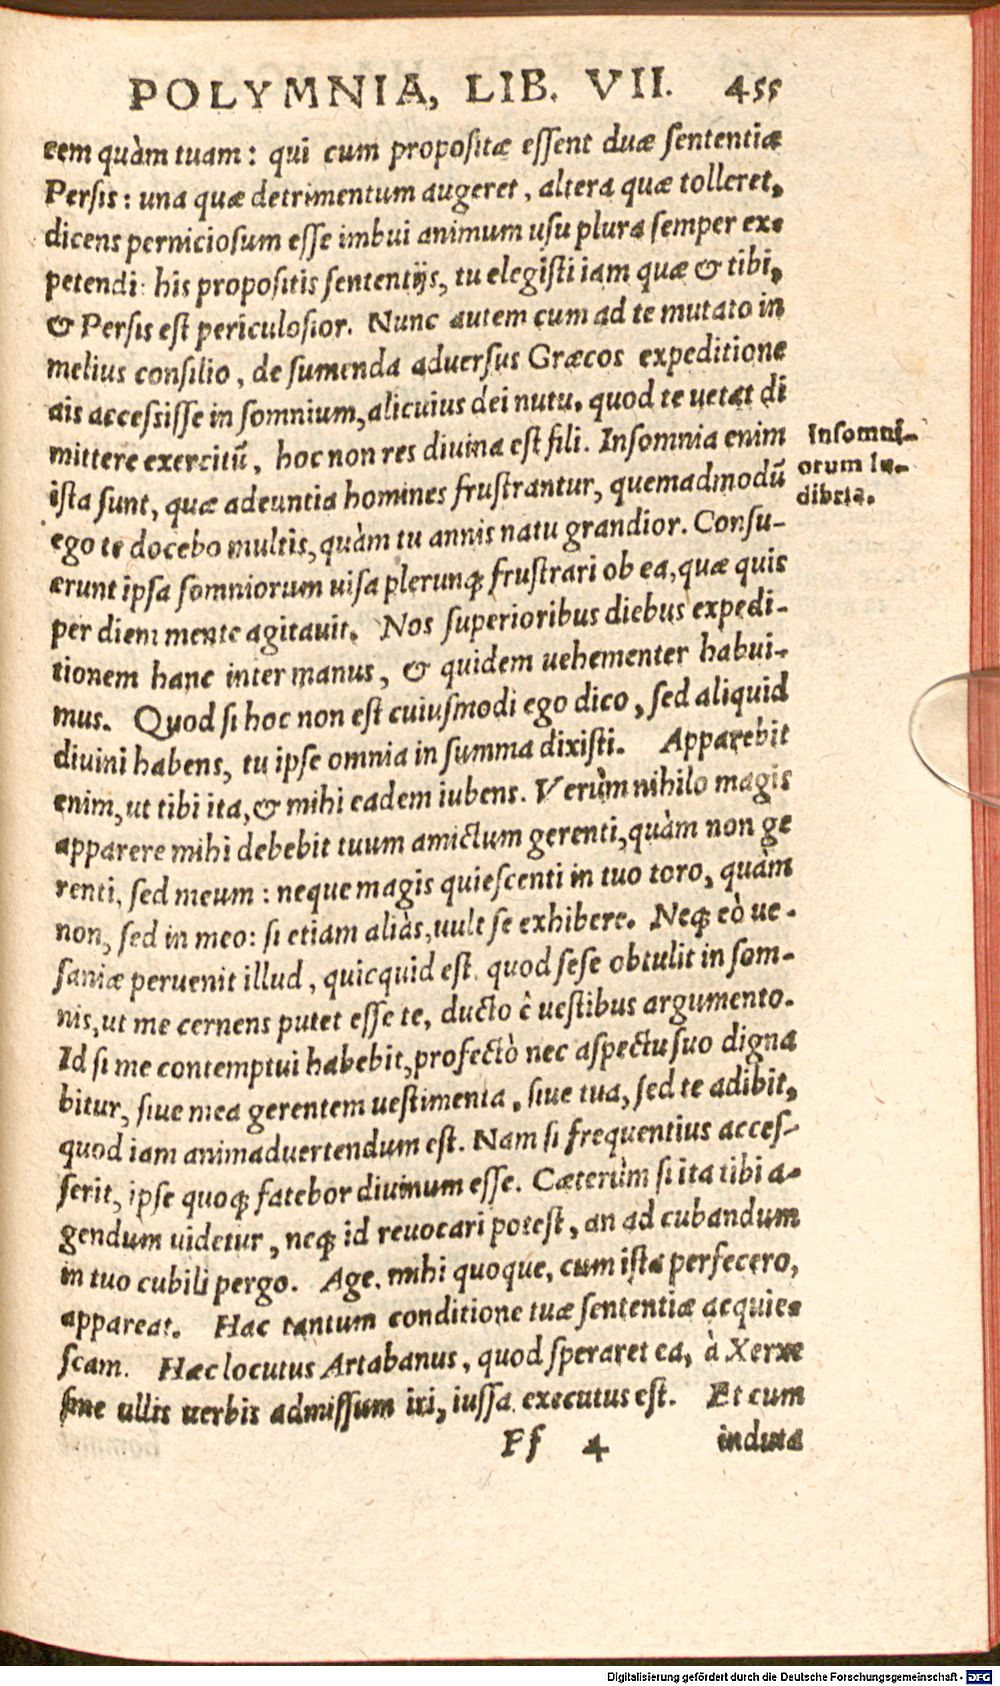 POLYMNIA, LIB. VII. 455
cem quàm tuam: qui cum propositæ essent duæ sententiæ
Persis: una quæ detrimentum augeret, altera quæ tolleret,
dicens perniciosum esse imbui animum usu plura semper ex-
petendi: his propositis sententijs, tu elegisti iam quæ & tibi,
& Persis est periculosior. Nunc autem cum ad te mutato in
melius consilio, de sumenda adversus Græcos expeditione
ais accessisse in somnium, alicuius dei nutu, quod te uetat di
mittere exercitũ, hoc non res diuina est fili. Insomnia enim
ista sunt, quæ adeuntia homines frustrantur, quemadmodũ
ego te docebo multis, quàm tu annis natu grandior. Consu-
erunt ipsa somniorum uisa plerunq; frustrari ob ea, quæ quis
per diem mente agitauit. Nos superioribus diebus expedi-
tionem hanc inter manus, & quidem uehementer habui-
mus. Quod si hoc non est cuiusmodi ego dico, sed aliquid
diuini habens, tu ipse omnia in summa dixisti. Apparebit
enim, ut tibi ita, & mihi eadem iubens. Verùm nihilo magis
apparere mihi debebit tuum amictum gerenti, quàm non ge
renti, sed meum: neque magis quiescenti in tuo toro, quàm
non, sed in meo: si etiam aliàs, uult se exhibere. Neq; eò ue-
saniæ peruenit illud, quicquid est, quod sese obtulit in som-
nis, ut me cernens putet esse te, ducto è uestibus argumento.
Id si me contemptui habebit, profectò nec aspectu suo digna
bitur, siue mea gerentem uestimenta, siue tua, sed te adibit,
quod iam animaduertendum est. Nam si frequentius acces-
serit, ipse quoq; fatebor diuinum esse. Cæterùm si ita tibi a-
gendum uidetur, neq; id reuocari potest, an ad cubandum
in tuo cubili pergo. Age, mihi quoque, cum ista perfecero,
appareat. Hac tantum conditione tuæ sententiæ acquie-
scam. Hæc locutus Artabanus, quod speraret ea, à Xerxe
sine ullis uerbis admissum iri, iussa executus est. Et cum
Ff 4 induta
Insomni-
orum lu-
dibria.
Digitalisierung gefördert durch die Deutsche Forschungsgemeinschaft - DFG